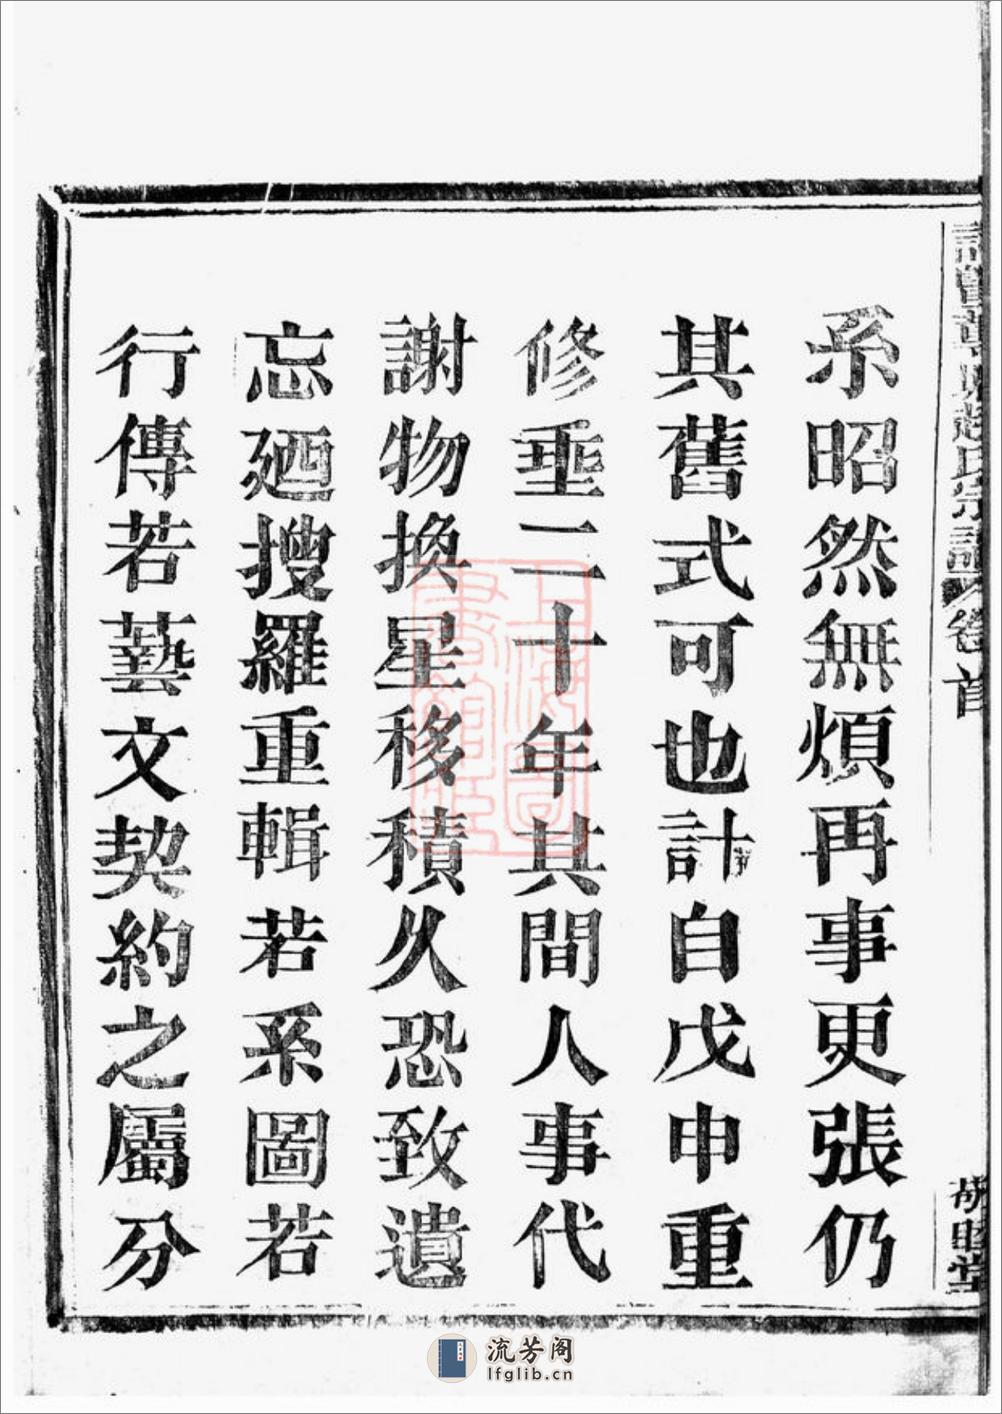 諸暨章卿趙氏宗譜 卷首
系昭然無煩再事更張仍
其舊式可也計自戊申重
修垂二十年其間人事代
謝物換星移積久恐致遺
忘廼搜羅重輯若系圖若
行傳若藝文契約之屬分
睦堂
上海圖書館藏
流芳阁
lfglib.cn